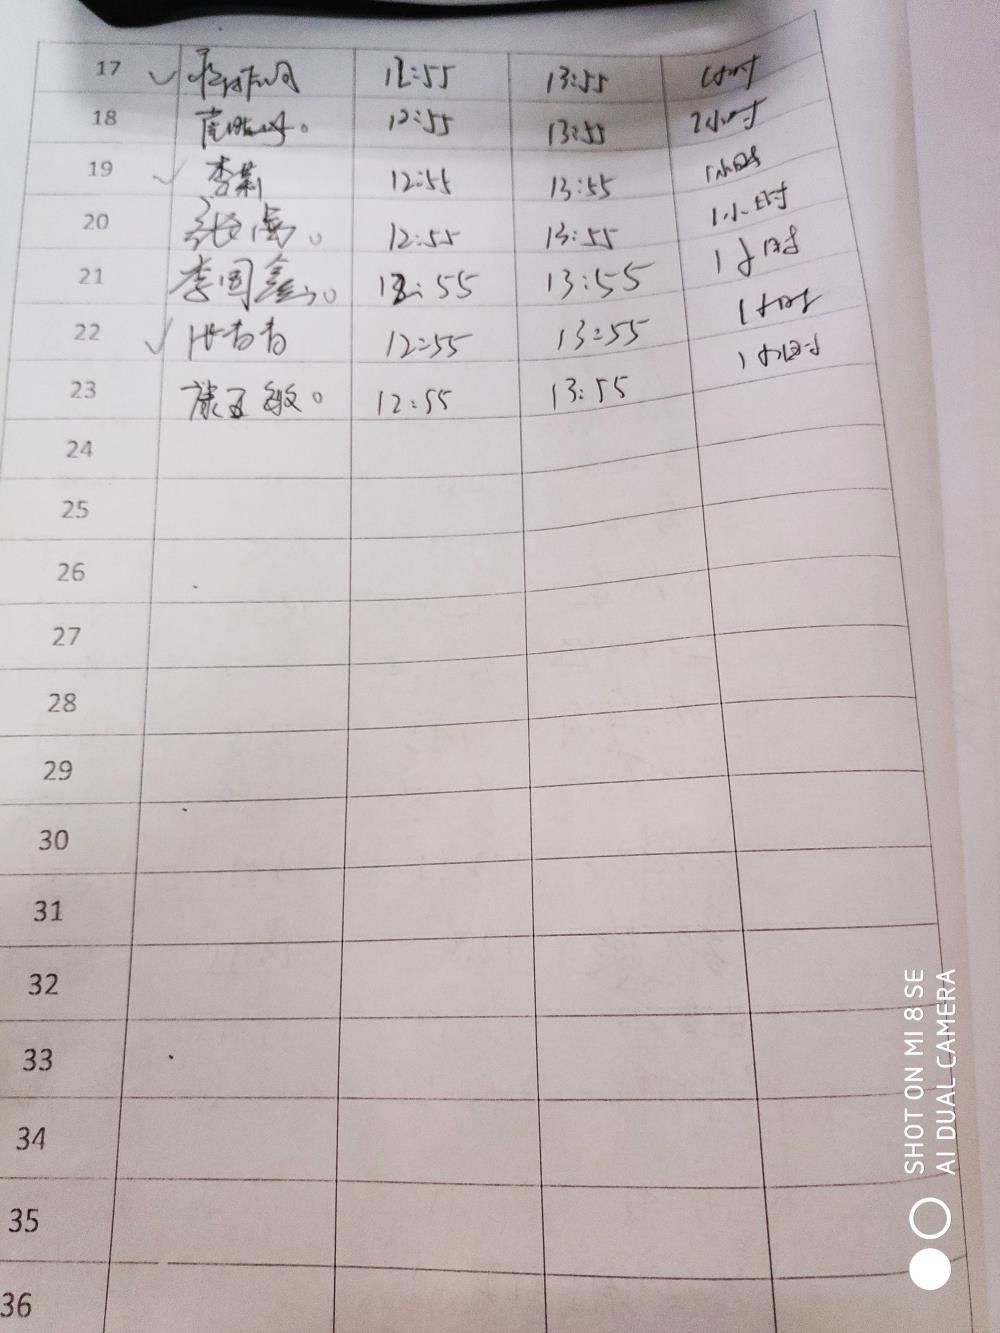 17 12:55 13:55 1小时
18 12:55 13:55 1小时
19 李莉 12:55 13:55 1小时
20 12:55 13:55 1小时
21 李国鑫 12:55 13:55 1小时
22 12:55 13:55 1小时
23 12:55 13:55 1小时
24
25
26
27
28
29
30
31
32
33
34
35
36
SHOT ON MI 8 SE
AI DUAL CAMERA